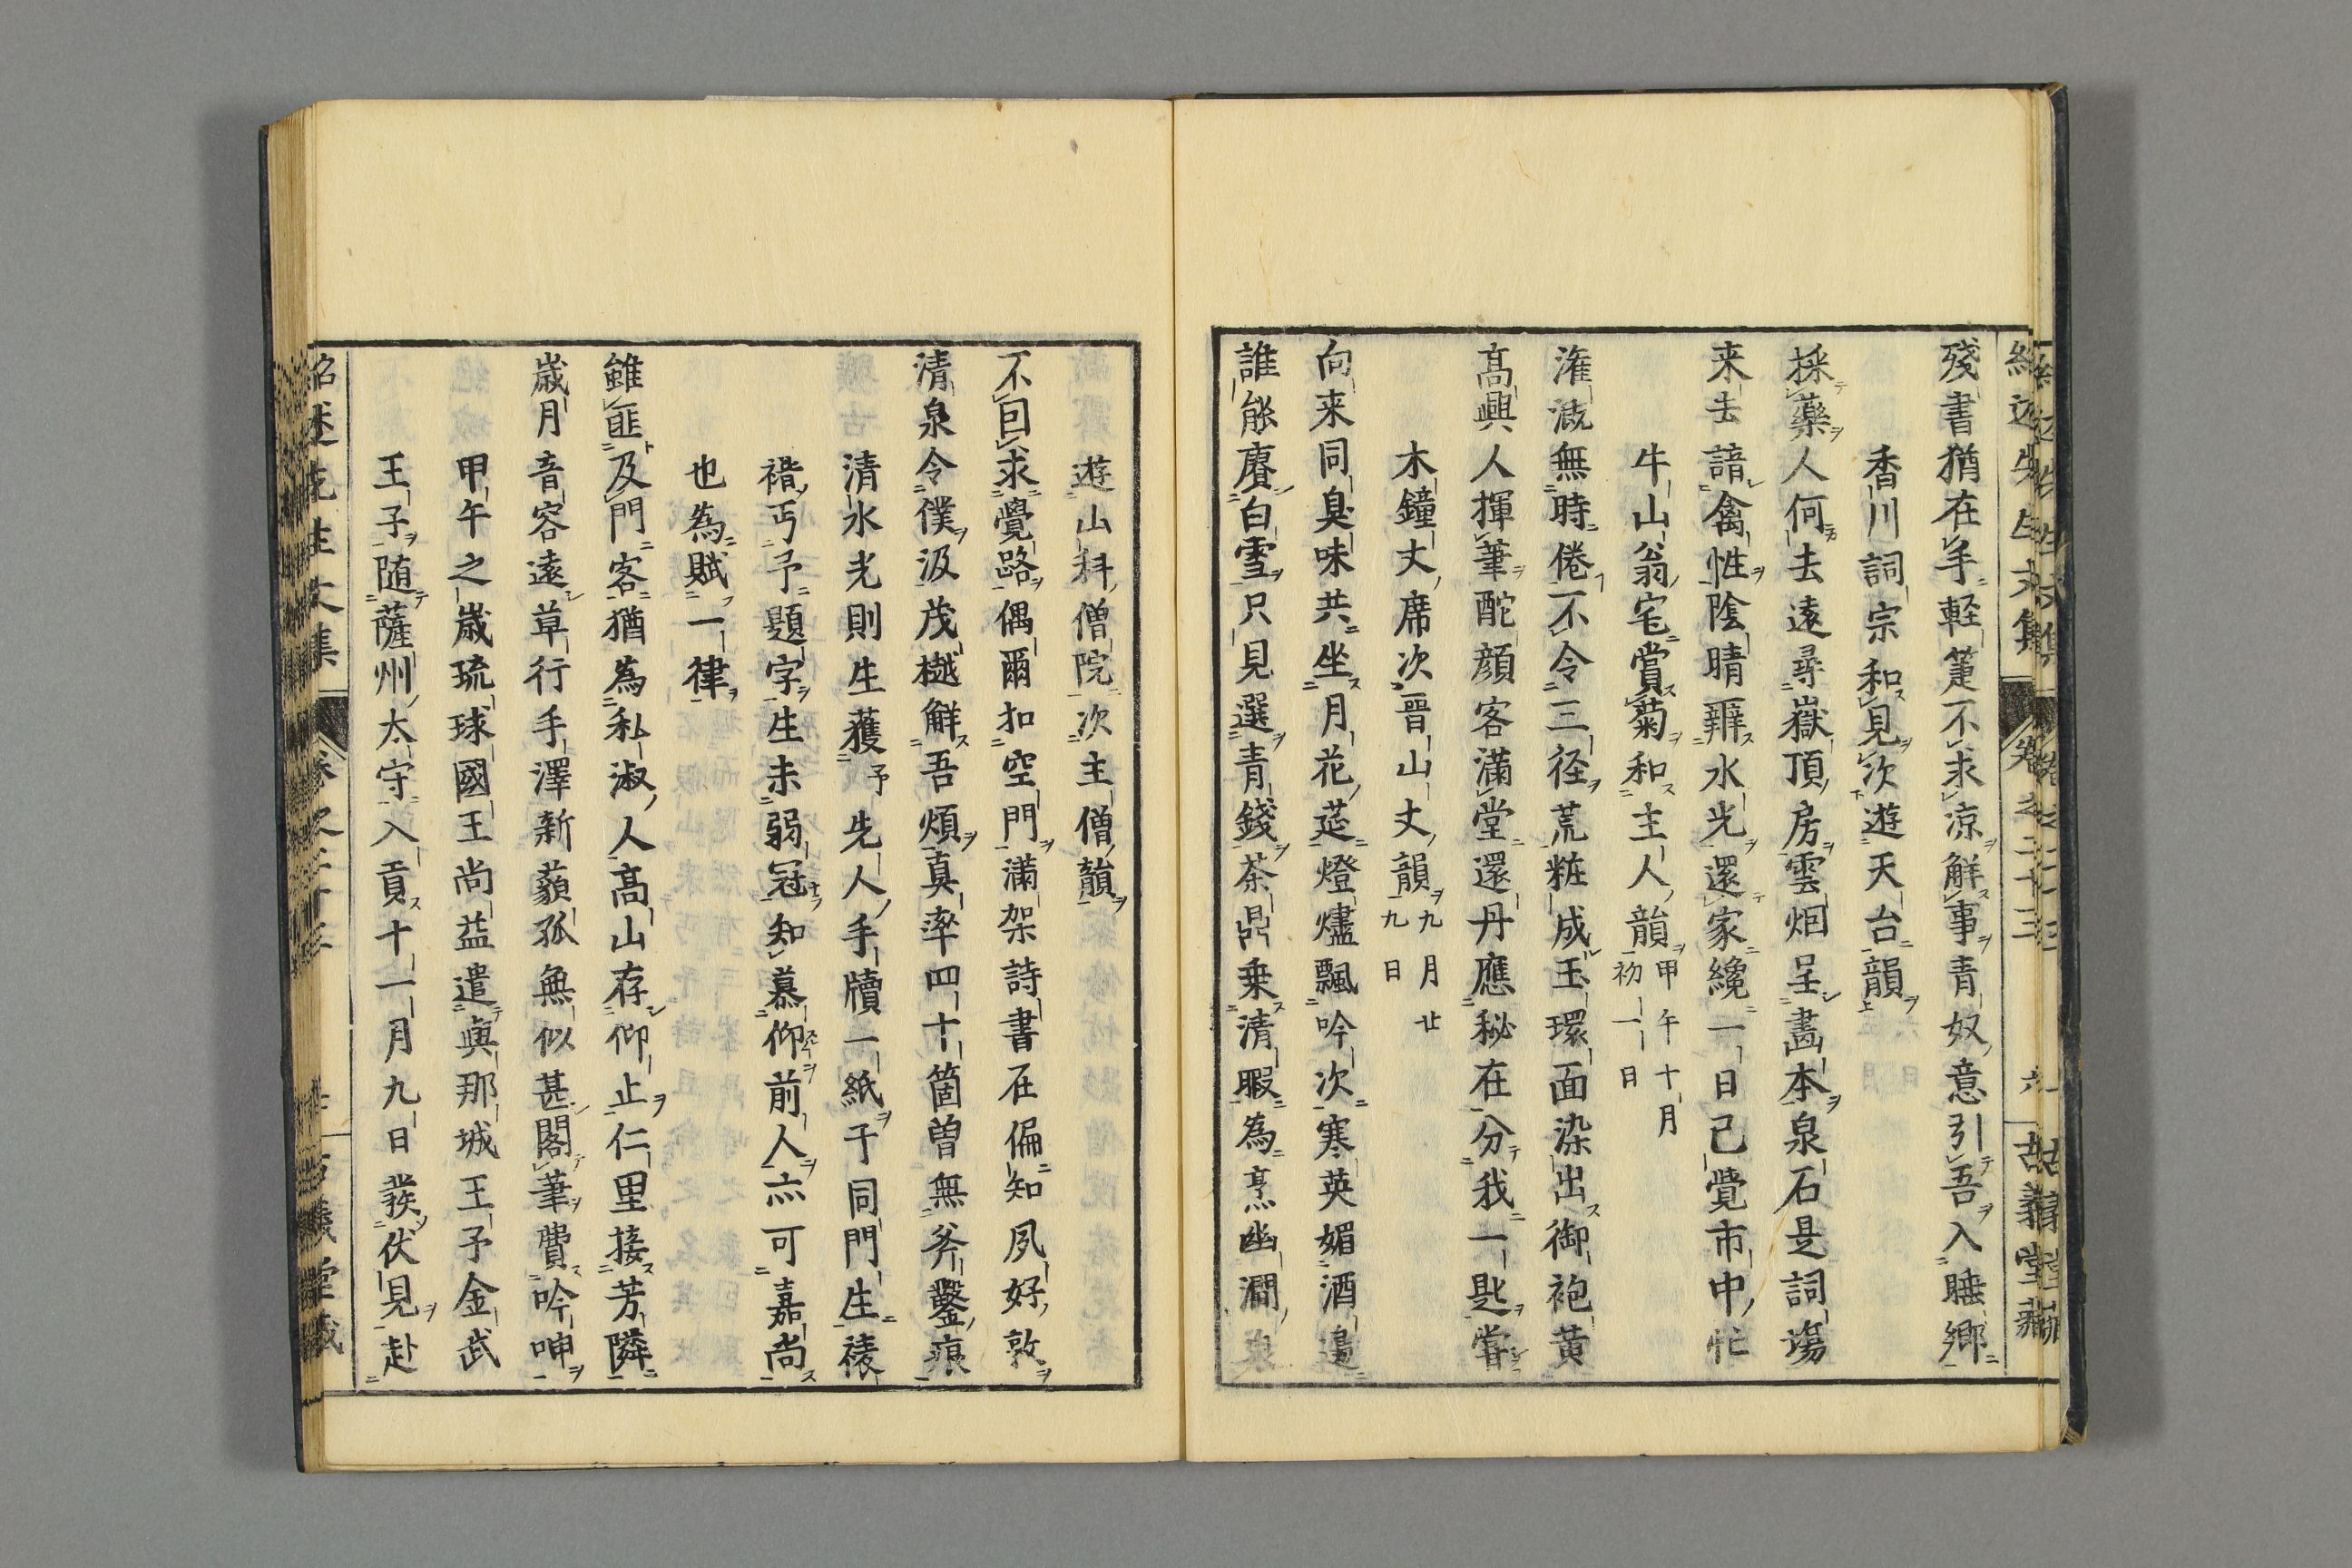 紹述先生文集 卷之二十三 六 古義堂藏
殘書猶在手軽箑不求凉解事青奴意引吾入睡鄉
香川詞宗和見次遊天台韻
採藥人何去遠尋嶽頂房雲烟呈畵本泉石是詞場
来去諳禽性陰晴辨水光還家纔一日已覺市中忙
牛山翁宅賞菊和主人韻 甲午十月初一日
潅漑無時倦不令三径荒粧成玉環面染出御袍黄
髙興人揮筆酡顔客滿堂還丹應秘在分我一匙嘗
木鐘丈席次晋山丈韻 九月廿九日
向来同臭味共坐月花莚燈燼飄吟次寒英媚酒邉
誰能賡白雪只見選青錢茶鼎乗清暇為烹幽澗泉
遊山科僧院次主僧韻
不回求覺路偶爾扣空門滿架詩書在偏知夙好敦
清泉令僕汲茂樾解吾煩真率四十箇曽無斧鑿痕
清水光則生獲予先人手牘一紙于同門生稜
𥡴丐予題字生未弱冠知慕仰前人亦可嘉尚
也為賦一律
雖匪及門客猶為私淑人髙山存仰止仁里接芳隣
歲月音容遠草行手澤新藐孤無似甚閣筆費吟呻
甲午之歲琉球國王尚益遣與那城王子金武
王子随薩州太守入貢十一月九日發伏見赴
紹述先生文集 卷之二十三 古義堂藏